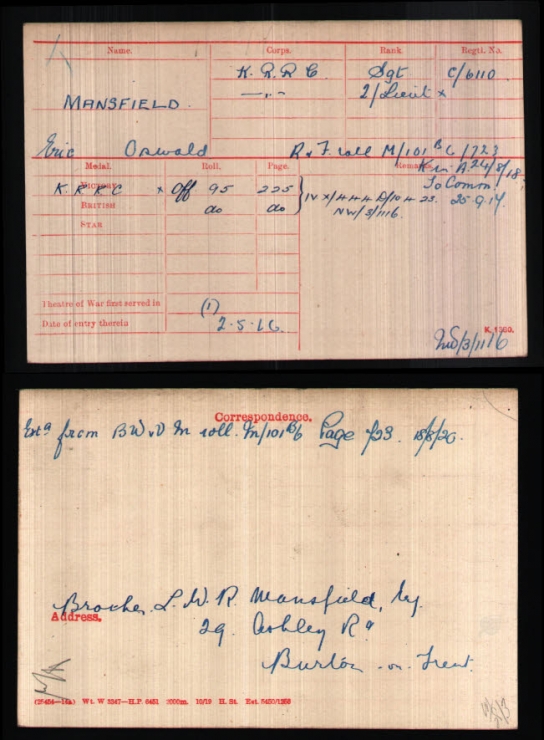 Name. Corps. Rank. Regtl. No.
K. R. R. C. Sgt C/6110
—„— 2/Lieut x
MANSFIELD.
Eric Oswald R v F. roll M/101 B6/723
Medal. Roll. Page. Remarks. K in A. 24/8/18.
VICTORY K R R C x Off 95 225 To Commn
BRITISH do do IV X/444 D/10423. 25.9.17.
NW/5/1116.
STAR
Theatre of War first served in (1)
Date of entry therein 2.5.16.
K. 1380.
NW/3/1116
Correspondence.
Extd from BW & V M roll. M/101 B6 Page 723. 18/8/20.
Brother L. W. R Mansfield,
Address.
29. Ashley Rd
Burton-on-Trent.
Wt. W 3347—H.P. 6451 2000m. 10/19 H. St.